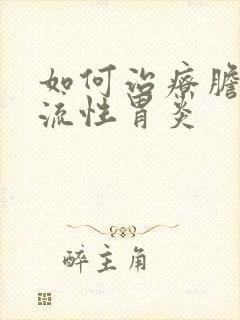 如何治療膽
流性胃炎
醉主角